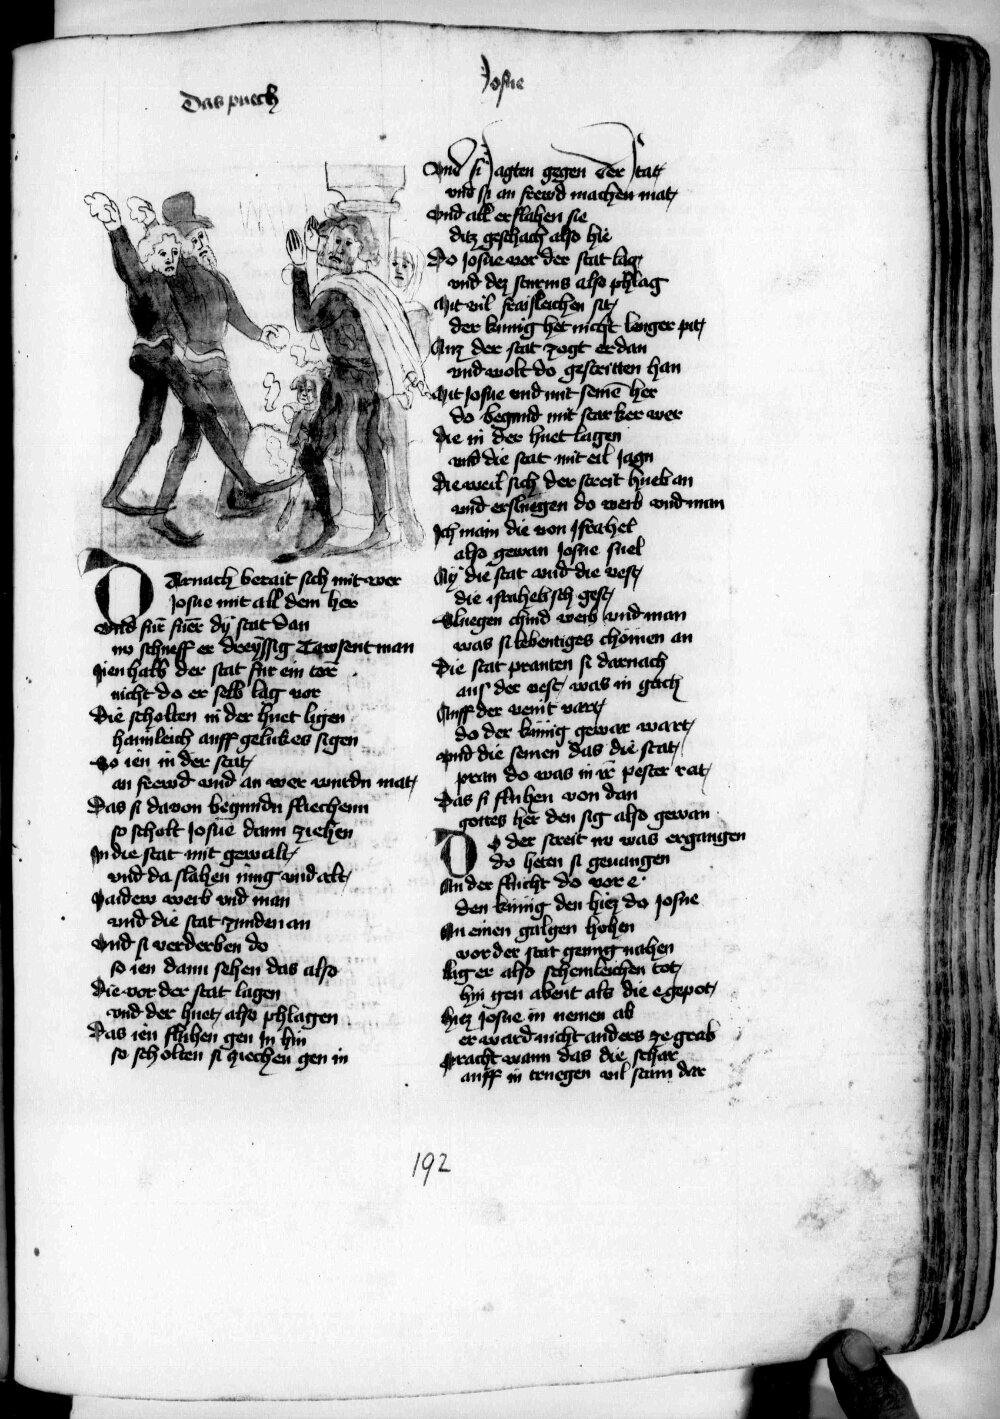 Das puech
Josue
Darnach berait sich mit wer
Josue mit all dem her
Vnd für fuer dy stat dan
nu schueff er dreyssig Tawsent man
Jienhalb der stat für ein tor
nicht do er selb lag vor
Die scholten in der huet ligen
haimleich auff gelukes sigen
So ien in der stat
an frewd vnd an wer wurdn mat
Das si davon begundn fliechenn
so scholt Josue dann ziehen
In die stat mit gewalt
vnd da slahen iung vnd alt
Paidew weib vnd man
vnd die stat zunden an
Vnd si verderben do
so ien dann sehen das also
Die vor der stat lagen
vnd der huet also phlagen
Das ien fluhen gen In hin
so scholten si ziechen gen in
Vnd si Jagten gegen der stat
vnd si an frewd machen mat
Vnd all erslahen sie
ditz geschach also hie
Do Josue vor der stat lag
vnd dez sturms also phlag
Mit vil fraisleichen sit
der kunig het nicht lenger pit
Auz der stat zogt er dan
vnd wolt do gestritten han
Mit Josue vnd mit seinē her
do begund mit starker wer
Die in der huet lagen
vnd die stat mit eil Jagn
Die weil sich der streit hueb an
vnd ersluegen do weib vnd man
Ich main die von Israhel
also gewan Josue snel
Ay die stat vnd die vest
die israhelisch gest
Sluegen chind weib vnd man
was si lebentiges chomen an
Die stat pranten si darnach
aus der vest was in gach
Auff der veint vart
do der kunig gewar wart
Vnd die seinen das die stat
pran do was in ir pester rat
Das si fluhen von dan
gottes her den sig also gewan
Do der streit nu was ergangen
do heten si geuangen
An der flucht do vor e
den kunig den hiez do Josue
An einen galgen hohen
vor der stat genug nahen
Lig er also schemleichen tot
hin gen abent als die e gepot
Hiez Josue in nemen ab
er ward nicht anders ze grab
Pracht wann das die schar
auff in truegen vil stain dar
192